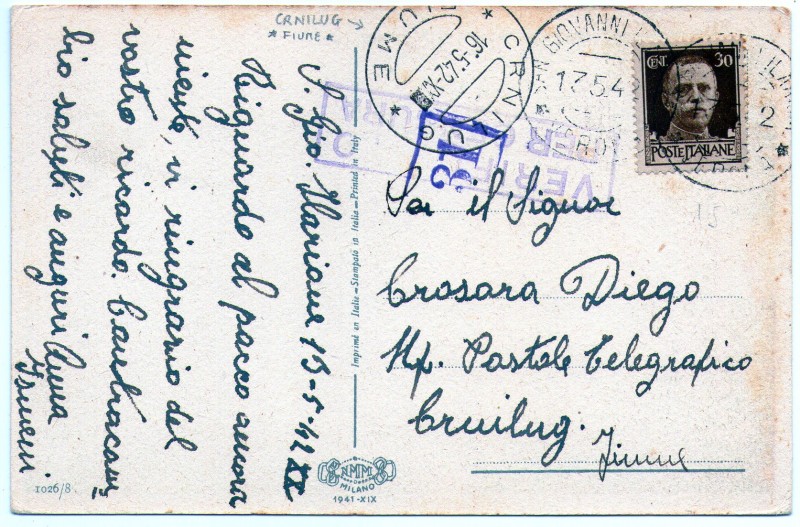 CRNILUG →
* FIUME *
S. Gio. Ilarione 15-5-42 XX
Riguardo al pacco ancora
niente, vi ringrazio del
vostro ricordo. Contraccam
bio saluti e auguri Anna
1026/8.
Imprimé en Italie – Stampato in Italia – Printed in Italy
NMM
MILANO
1941-XIX
* CRNILUG *
FIUME
16.5.42.XX
SAN GIOVANNI ILARIONE
17.5.42
VERIFICATO
PER CENSURA
CENT. 30
POSTE ITALIANE
15
Per il Signor
Crosara Diego
Uf. Postale Telegrafico
Crnilug.
Fiume